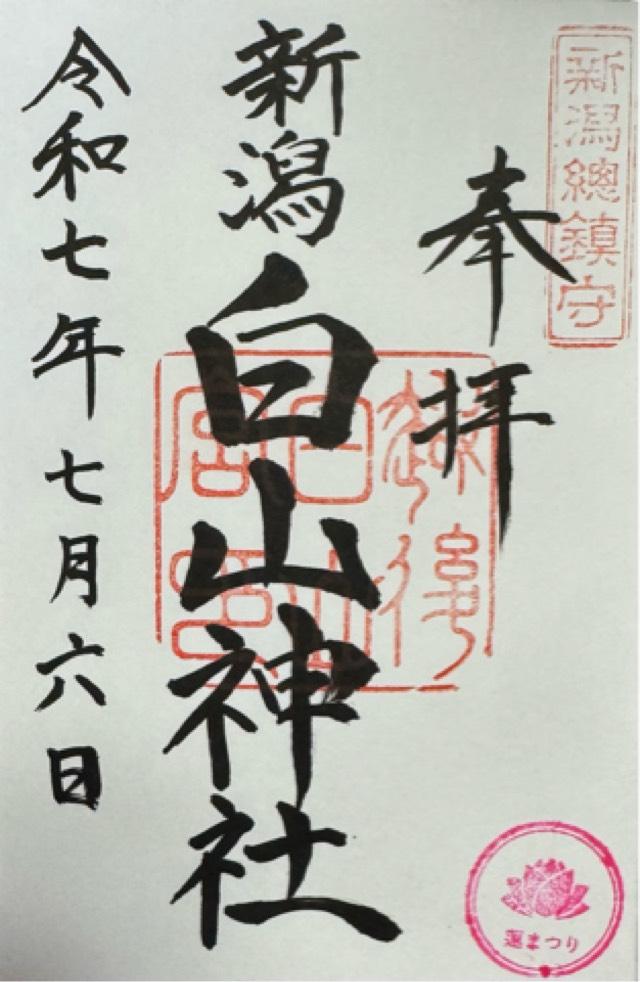 新潟總鎮守
奉拝
新潟白山神社
令和七年七月六日
蓮まつり